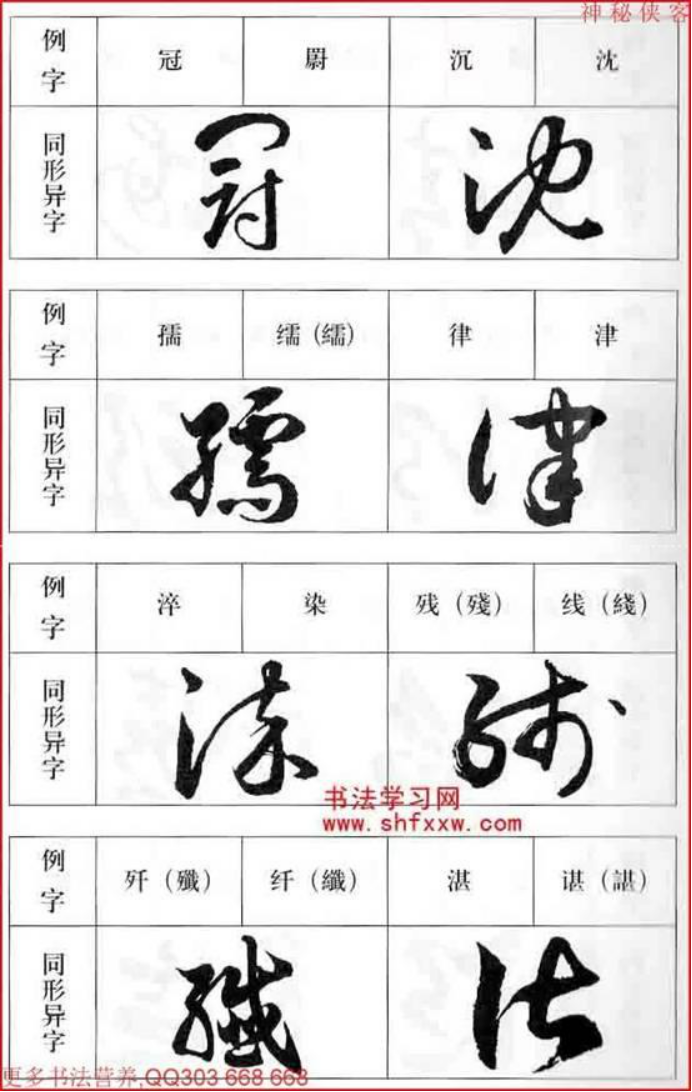 神秘侠客
例字 冠 罻 沉 沈
同形异字
例字 孺 缛 (繻) 律 津
同形异字
例字 淬 染 残 (殘) 线 (綫)
同形异字
书法学习网
www.shfxxw.com
例字 歼 (殲) 纤 (纖) 湛 谌 (諶)
同形异字
更多书法营养,QQ303 668 668